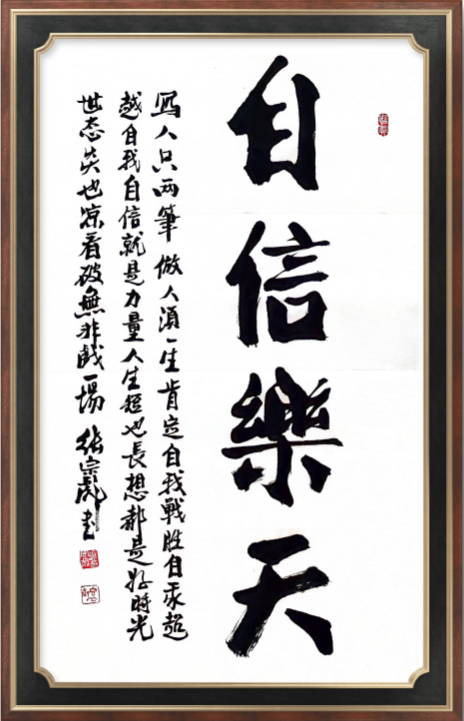 自信樂天
寫人只两筆做人湏一生肯定自我戰胜自我超
越自我自信就是力量人生短也長想都是好時光
世态炎也凉看破無非戲一場 张宗彪书